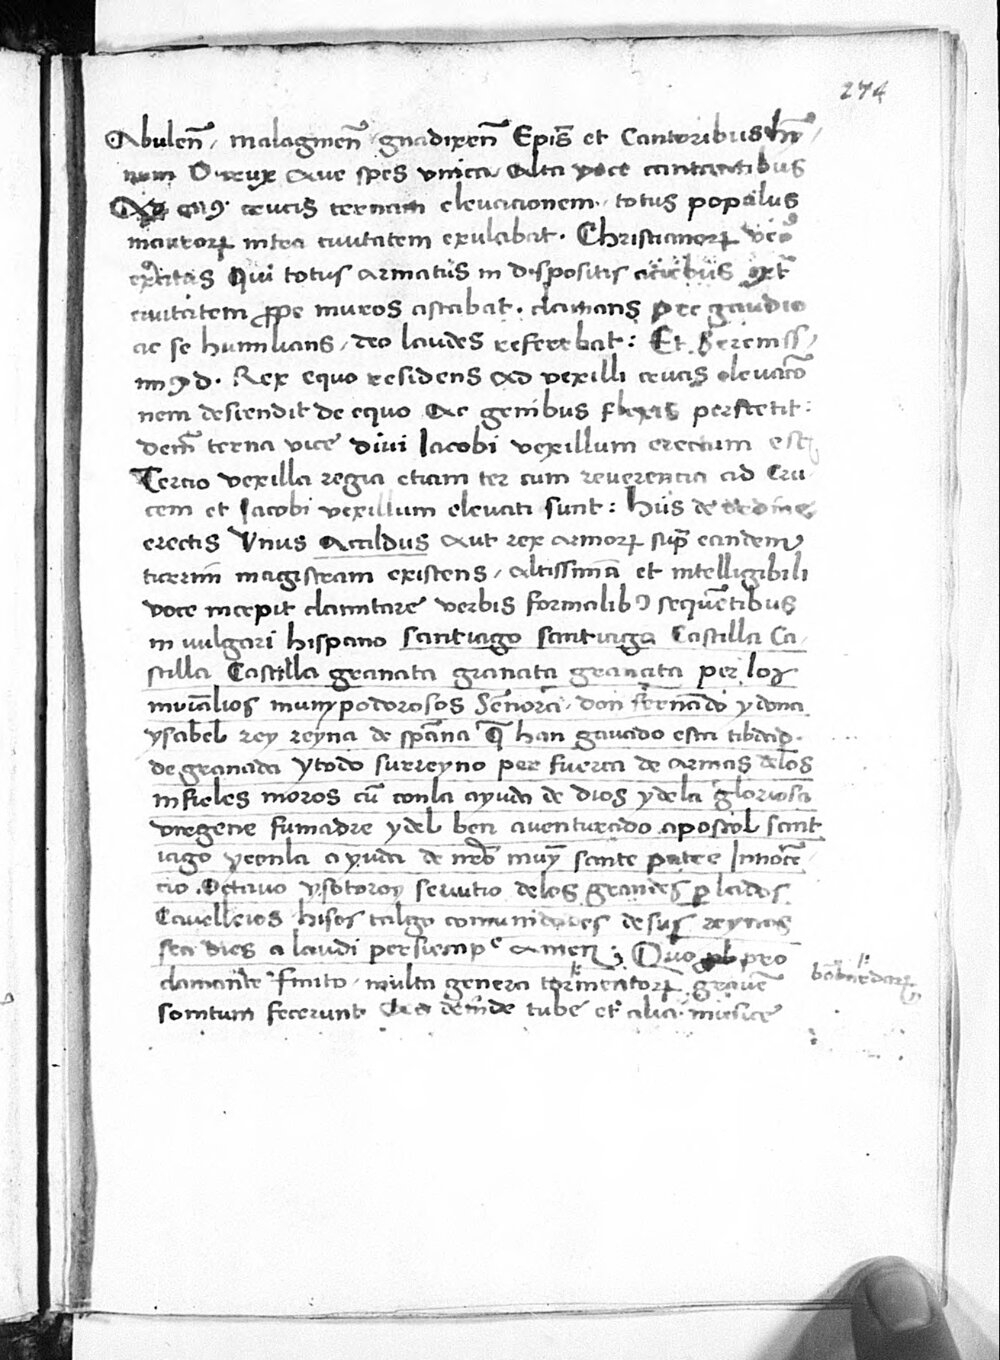 274
Abuleñ, malagineñ, gnadixeñ Epis̃ et Cantoribus hỹ,
num O crux Aue spes vnica, Alta voce cantantibus
Ad crucis ternam eleuacionem, totus populus
mauroꝝ intra ciuitatem exulabat. Christianoꝝ vero
exercitus Qui totus armatus in dispositis aciebus ext̃
ciuitatem ꝓpe muros astabat. clamans pre gaudio
ac se humilians, deo laudes referebat: Et Sereniss,
d. Rex equo residens Ad vexilli crucis eleuacõ
nem descendit de equo Ac genibus flexis perstetit:
dem̃ terna vice diui Iacobi vexillum erectum est
Tercio vexilla regia etiam ter cum reuerencia ad Cru
cem et Iacobi vexillum eleuati sunt: hiis de ordine
erectis Vnus Acaldus Aut rex armoꝝ sup̃ eandem
turrim magistram existens, altissimã et intelligibili
voce incepit clamitare verbis formalibꝫ sequẽtibus
in vulgari hispano santiago santiago Castilla Ca,
stilla Castilla granata granata granata per los
muy podorosos Señora, don fernãdo y dona
ysabel rey reyna de spãna q̃ han gauado esta
de granada ytodo surreyno per fuerca de armas delos
infieles moros cũ conla ayuda de dios ydela gloriosa
viregene sumadre ydel ben auenturado apostol sant
iago yconla ayuda de nr̃o muy sante patre Innocẽ,
cio Octauo ysotoroy seruitio delos grandes ꝑlados
Cauelleios hisos comunidades de sus reynos
a laudi persiempre amen; Quo pro
clamante finito, multa genera tormentoꝝ grauẽ
bõbardaꝝ
sonitum fecerunt Ac deinde tube et alia musice